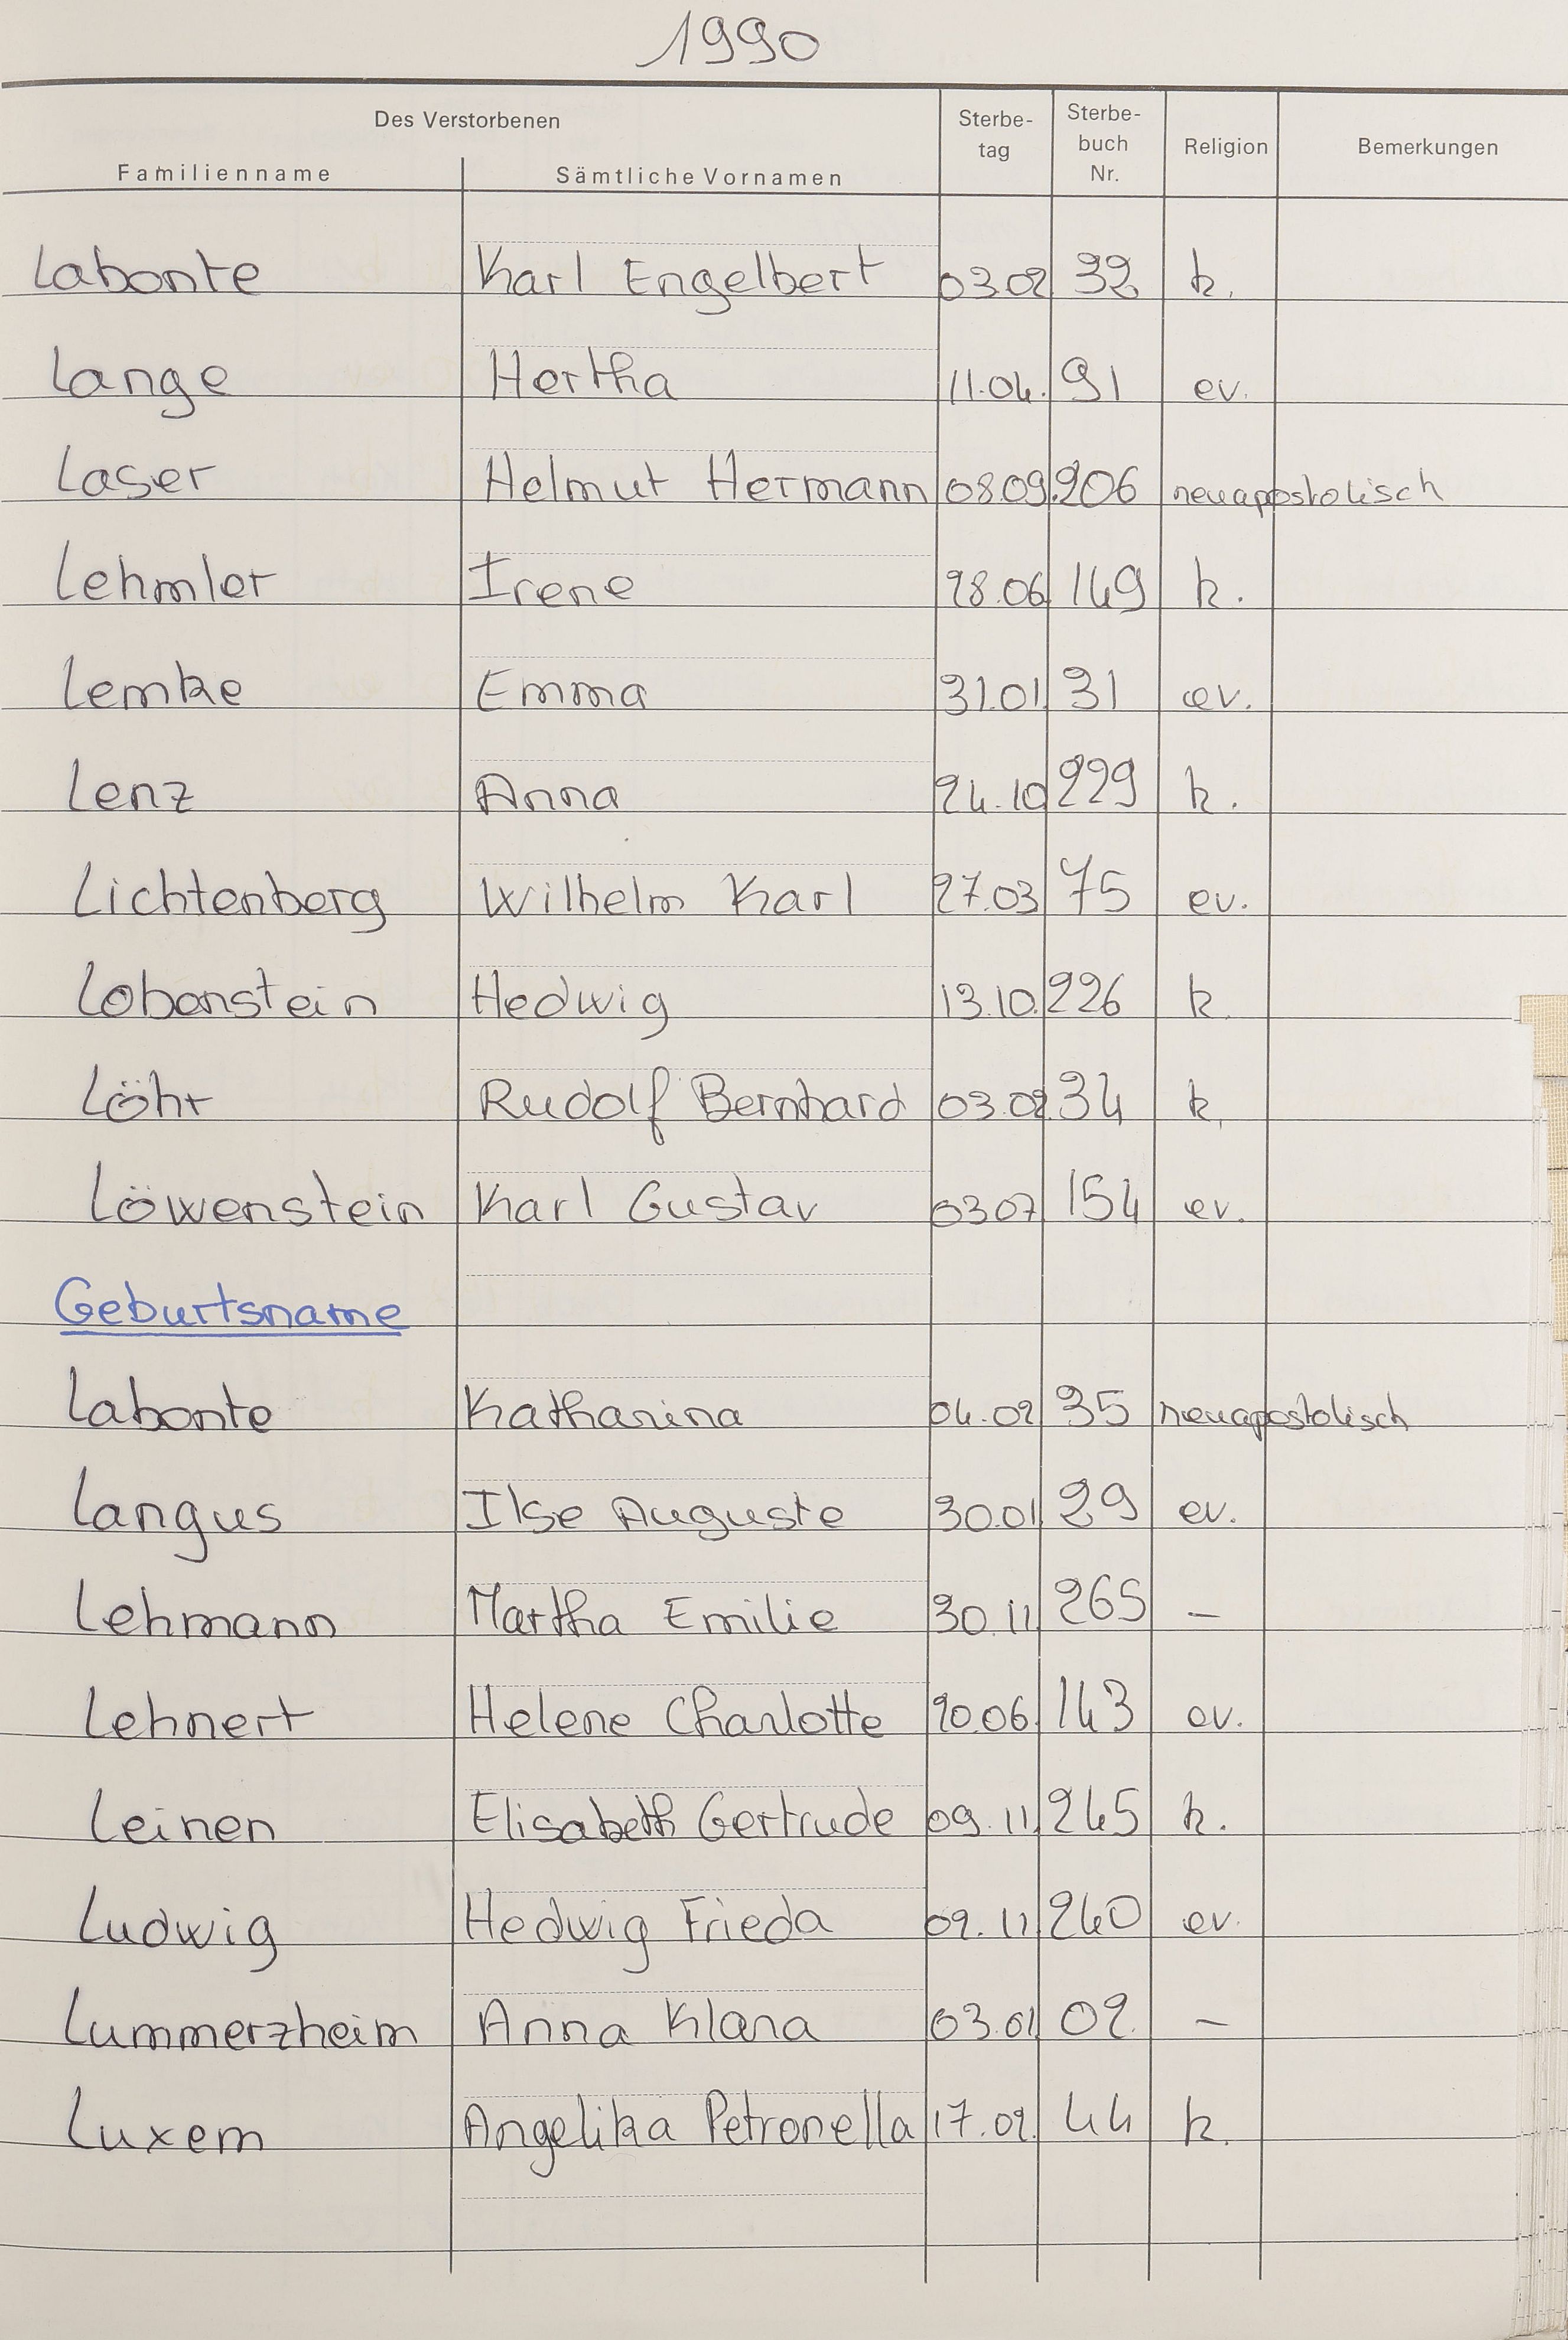 1990
Des Verstorbenen
Familienname Sämtliche Vornamen Sterbe-tag Sterbe-buch Nr. Religion Bemerkungen
Labonte Karl Engelbert 03.02 32 k.
Lange Hertha 11.04. 91 ev.
Laser Helmut Hermann 08.09. 206 neuapostolisch
Lehmler Irene 28.06 149 k.
Lemke Emma 31.01 31 ev.
Lenz Anna 24.10 229 k.
Lichtenberg Wilhelm Karl 27.03 75 ev.
Lobenstein Hedwig 13.10. 226 k.
Löhr Rudolf Bernhard 03.02. 34 k.
Löwenstein Karl Gustav 03.07 154 ev.
Geburtsname
Labonte Katharina 04.02 35 neuapostolisch
Langus Ilse Auguste 30.01 29 ev.
Lehmann Martha Emilie 30.11 265 –
Lehnert Helene Charlotte 20.06. 143 ev.
Leinen Elisabeth Gertrude 09.11 245 k.
Ludwig Hedwig Frieda 02.11 240 ev.
Lummerzheim Anna Klara 03.01 02. –
Luxem Angelika Petronella 17.02. 44 k.